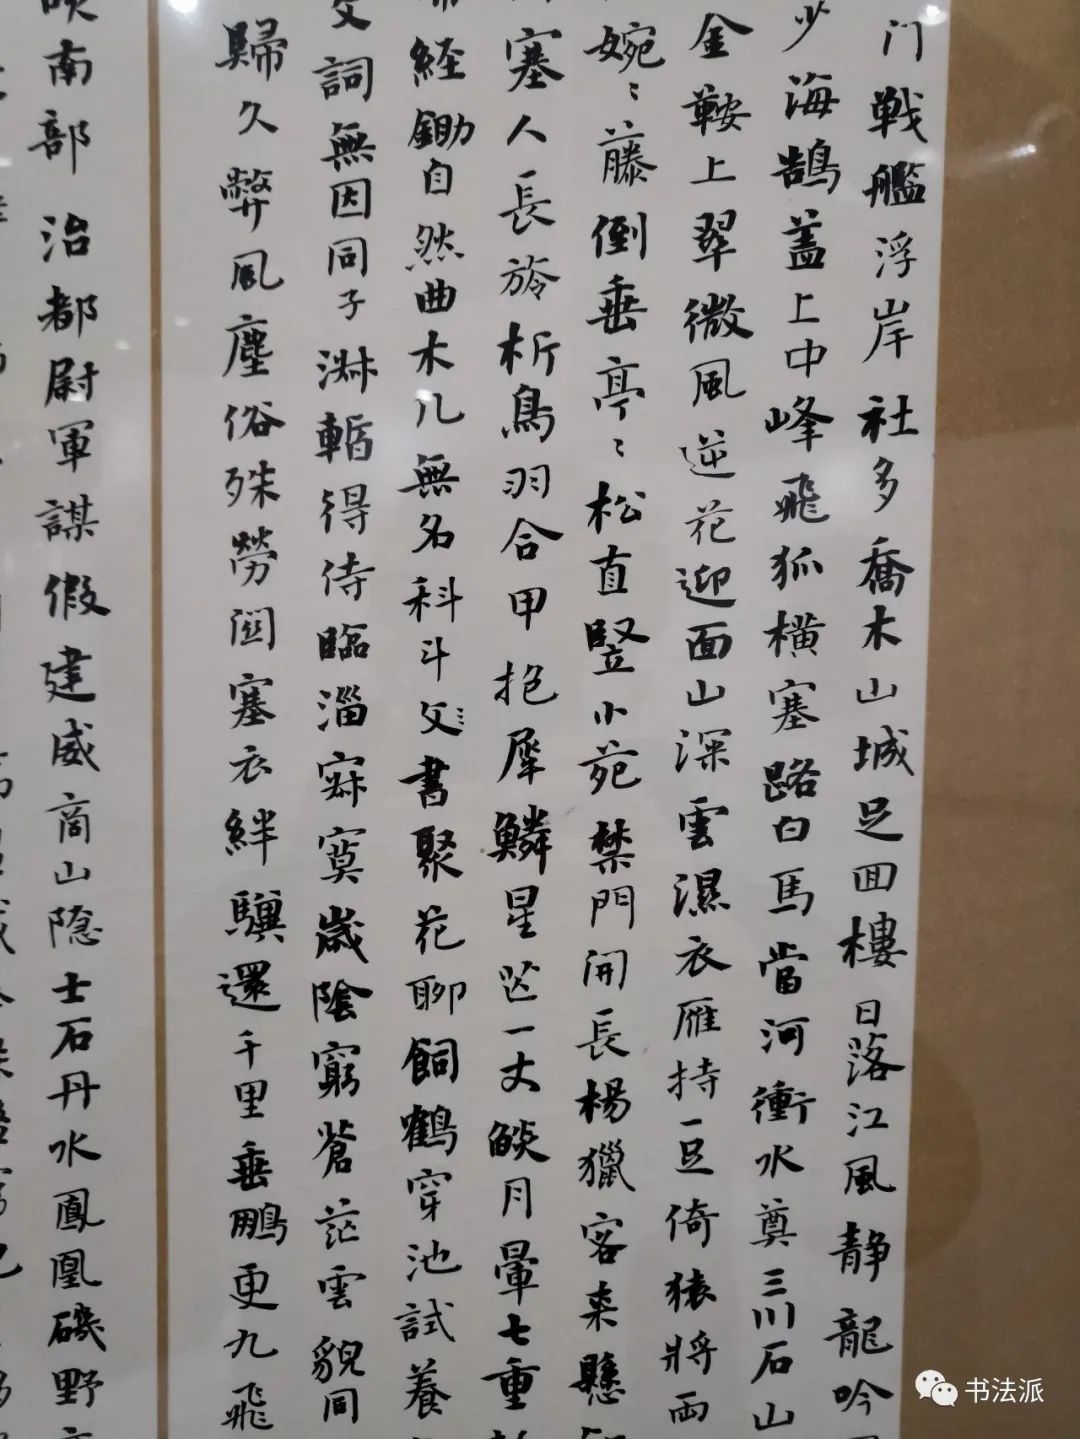 门戦艦浮岸社多喬木山城足回樓日落江風静龍吟
少海鵠蓋上中峰飛狐橫塞路白馬當河衝水奠三川石山
金鞍上翠微風逆花迎面山深雲濕衣雁持一足倚猿將兩
婉〻藤倒垂亭〻松直竪小苑禁門開長楊獵客来懸
塞人長旍析鳥羽合甲抱犀鱗星芒一丈燄月暈七重
経鋤自然曲木几無名科斗文〻書聚花聊飼鶴穿池試養
文詞無因同子淋暫得侍臨淄寂寞歲陰窮蒼茫雲貌同
歸久弊風塵俗殊勞関塞衣絆驥還千里垂鵬更九飛
南部治都尉軍謀假建威商山隐士石丹水鳳凰磯野
书法派